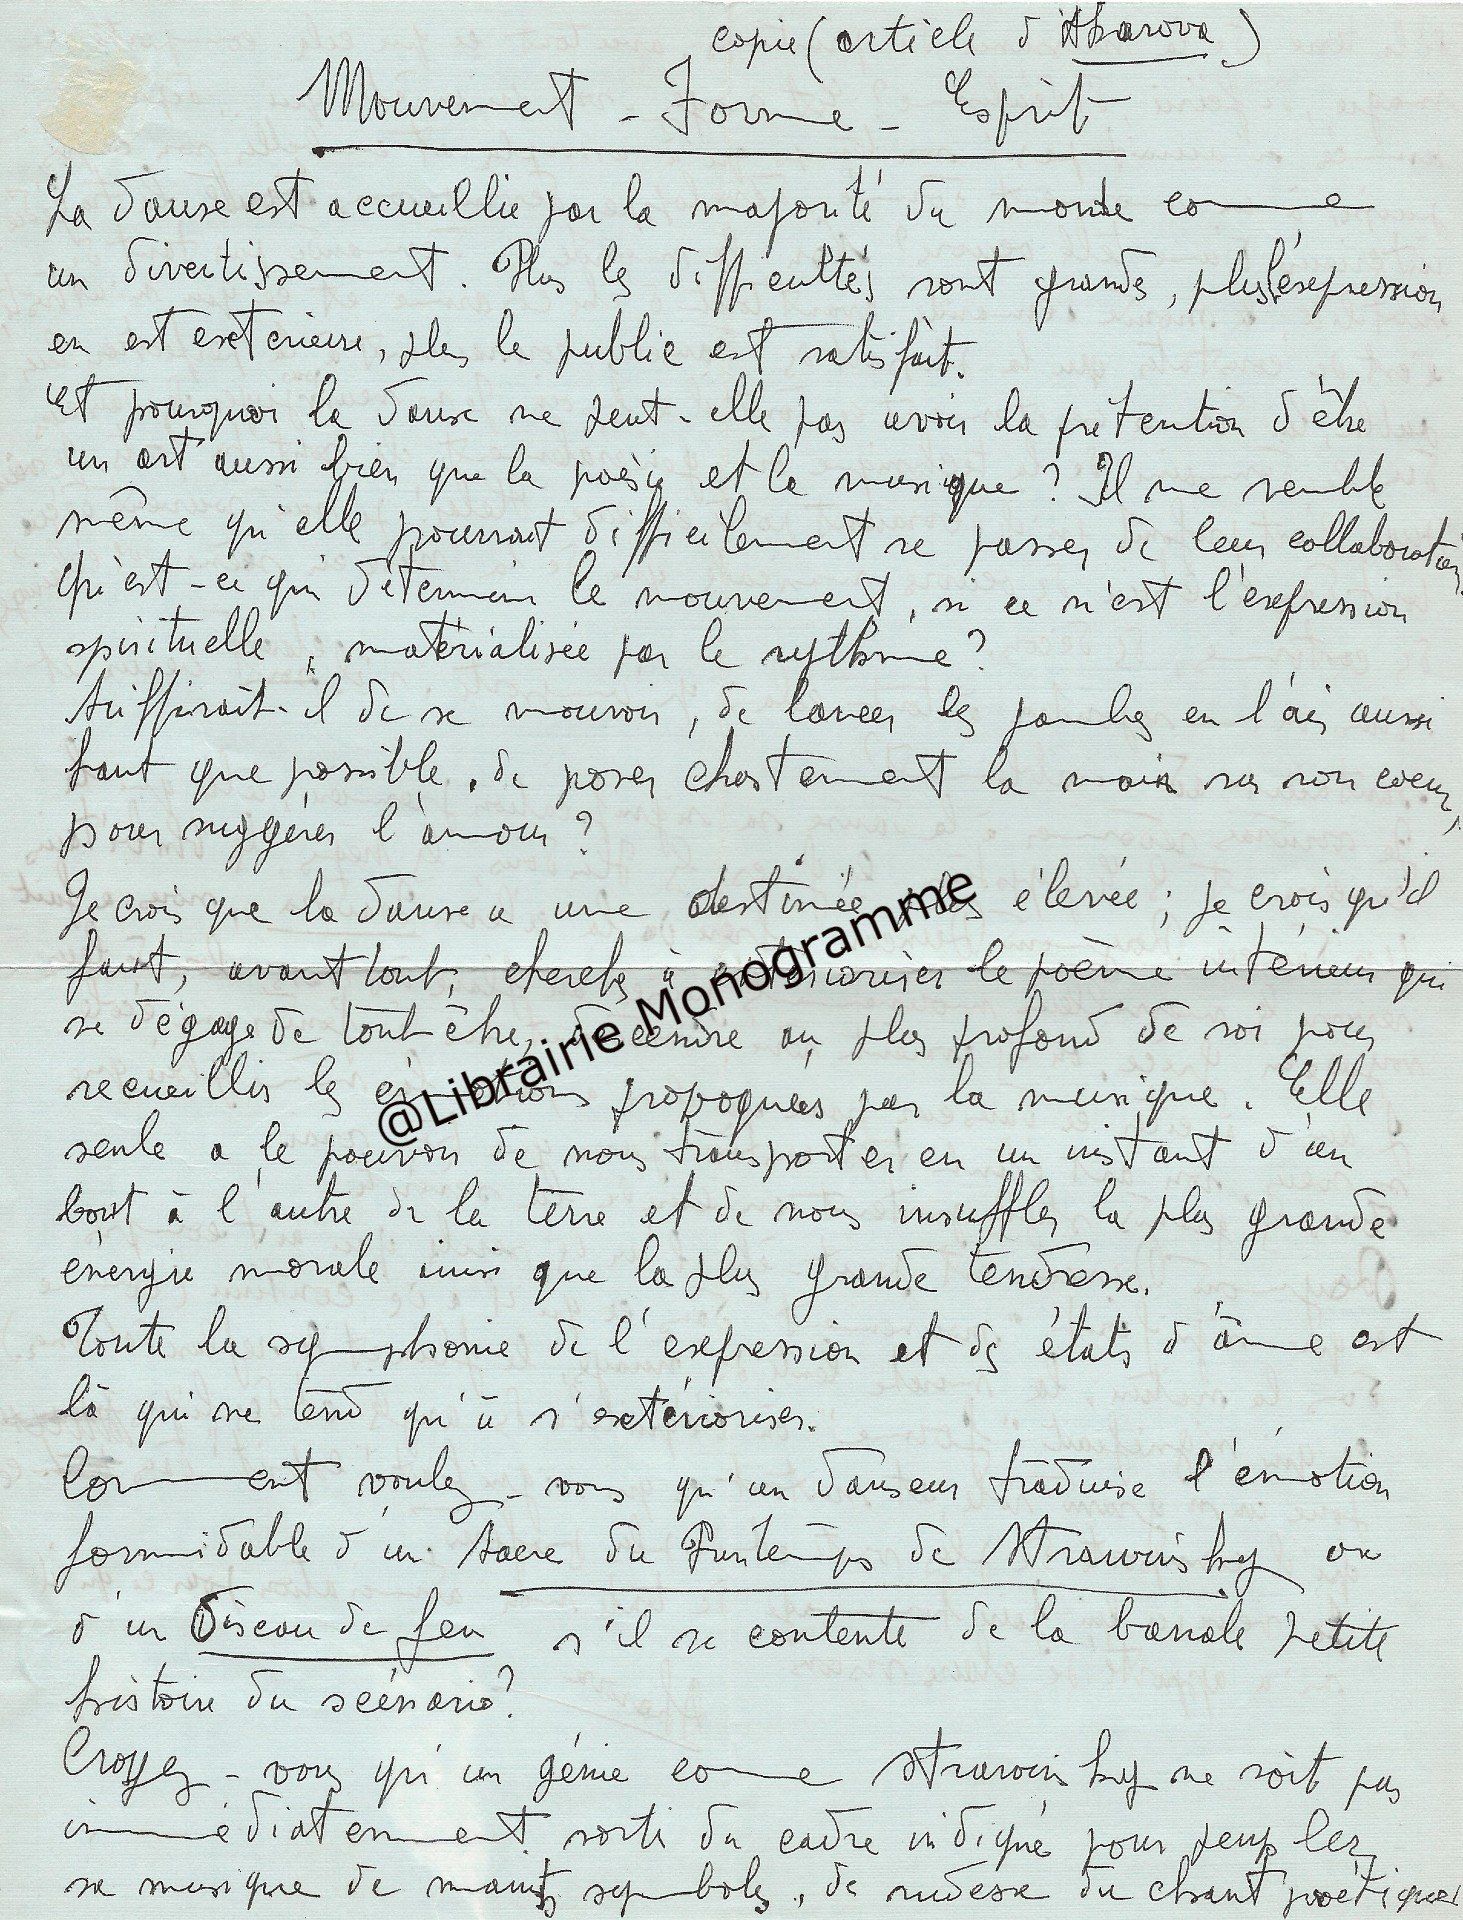 copie (article d'Akarova)
Mouvement - Forme - Esprit
La danse est accueillie par la majorité du monde comme
un divertissement. Plus les difficultés sont grandes, plus l'expression
en est exterieure, plus le public est satisfait.
Et pourquoi la danse ne peut-elle pas avoir la prétention d'être
un art aussi bien que la poésie et la musique ? Il me semble
même qu'elle pourrait difficilement se passer de leur collaboration.
Qu'est-ce qui détermine le mouvement, si ce n'est l'expression
spirituelle, matérialisée par le rythme ?
Suffirait-il de se mouvoir, de lancer les jambes en l'air aussi
haut que possible, de poser chastement la main sur son coeur,
pour suggérer l'amour ?
Je crois que la danse a une destinée plus élevée ; je crois qu'il
faut, avant tout, chercher à extérioriser le poème intérieur qui
se dégage de tout être, descendre au plus profond de soi pour
recueillir les émotions provoquées par la musique. Elle
seule a le pouvoir de nous transporter en un instant d'un
bout à l'autre de la terre et de nous insuffler la plus grande
énergie morale ainsi que la plus grande tendresse.
Toute la symphonie de l'expression et des états d'âme est
là qui ne tend qu'à s'extérioriser.
Comment voulez-vous qu'un danseur traduise l'émotion
formidable d'un Sacre du Printemps de Strawinsky ou
d'un Oiseau de feu s'il se contente de la banale petite
histoire du scénario ?
Croyez-vous qu'un génie comme Strawinsky ne soit pas
immédiatement sorti du cadre indiqué pour peupler
sa musique de maints symboles, de rudesse du chant poétique
@Librairie Monogramme